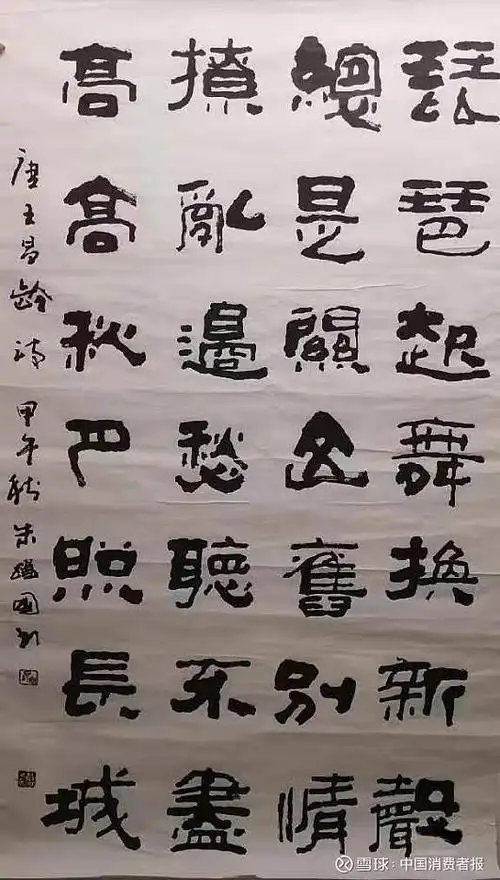 琵琶起舞換新聲
總是關山舊別情
撩亂邊愁聽不盡
高高秋月照長城
唐王昌齡詩 甲午秋 朱國
雪球：中国消费者报